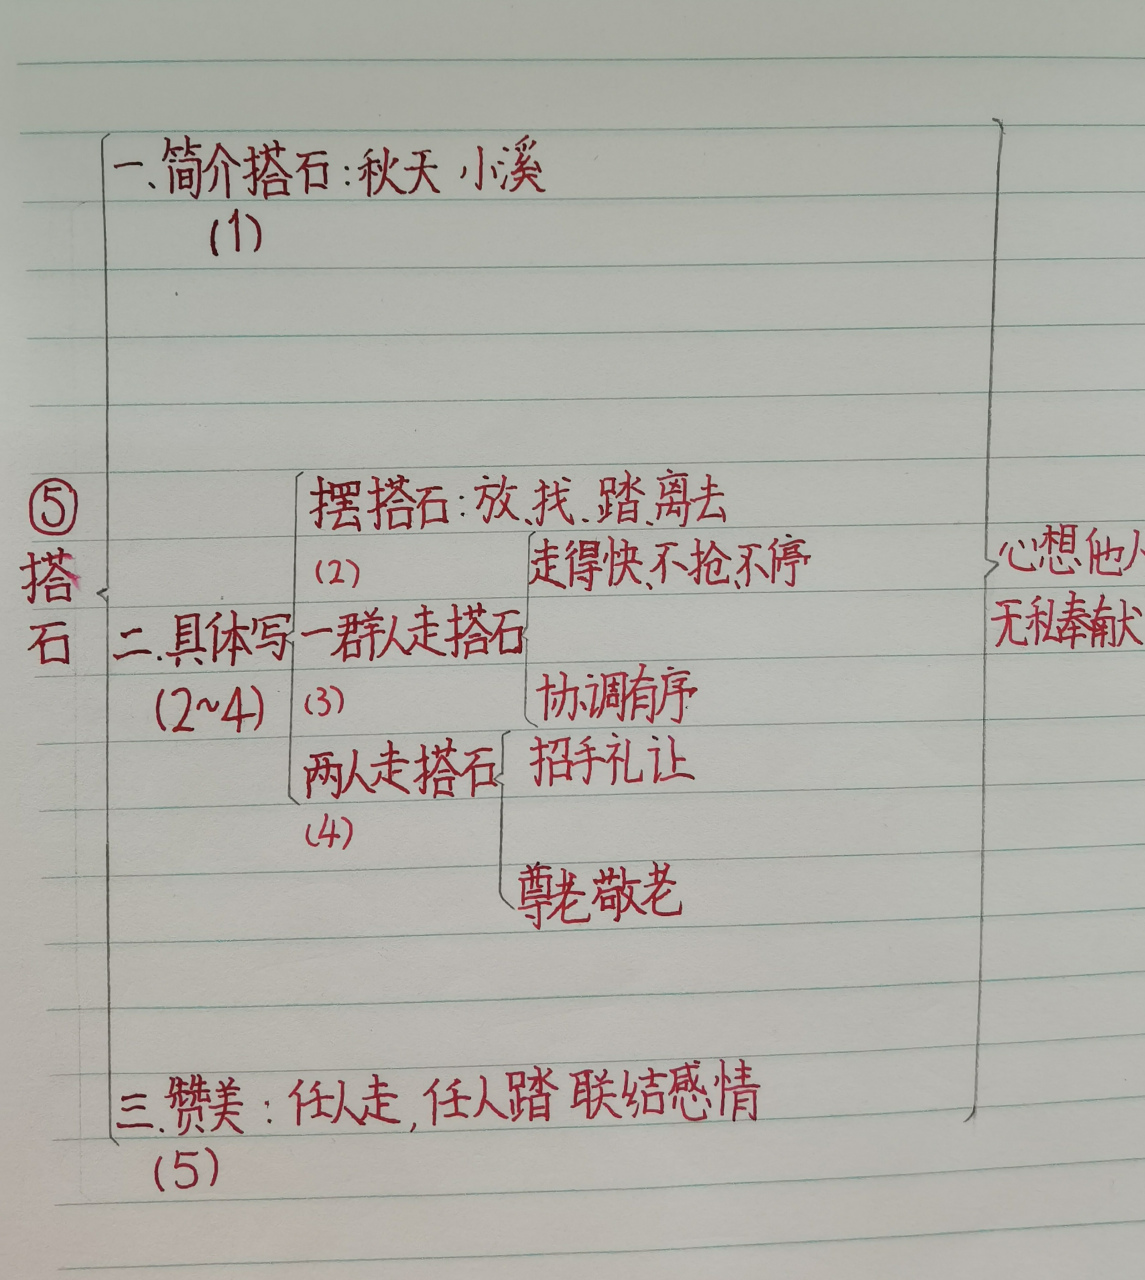 ⑤搭石
一、简介搭石:秋天 小溪
(1)
二.具体写
(2~4)
摆搭石:放、找、踏、离去
(2)
一群人走搭石
(3)
走得快、不抢、不停
协调有序
两人走搭石
(4)
招手礼让
尊老敬老
三.赞美:任人走,任人踏 联结感情
(5)
心想他人
无私奉献